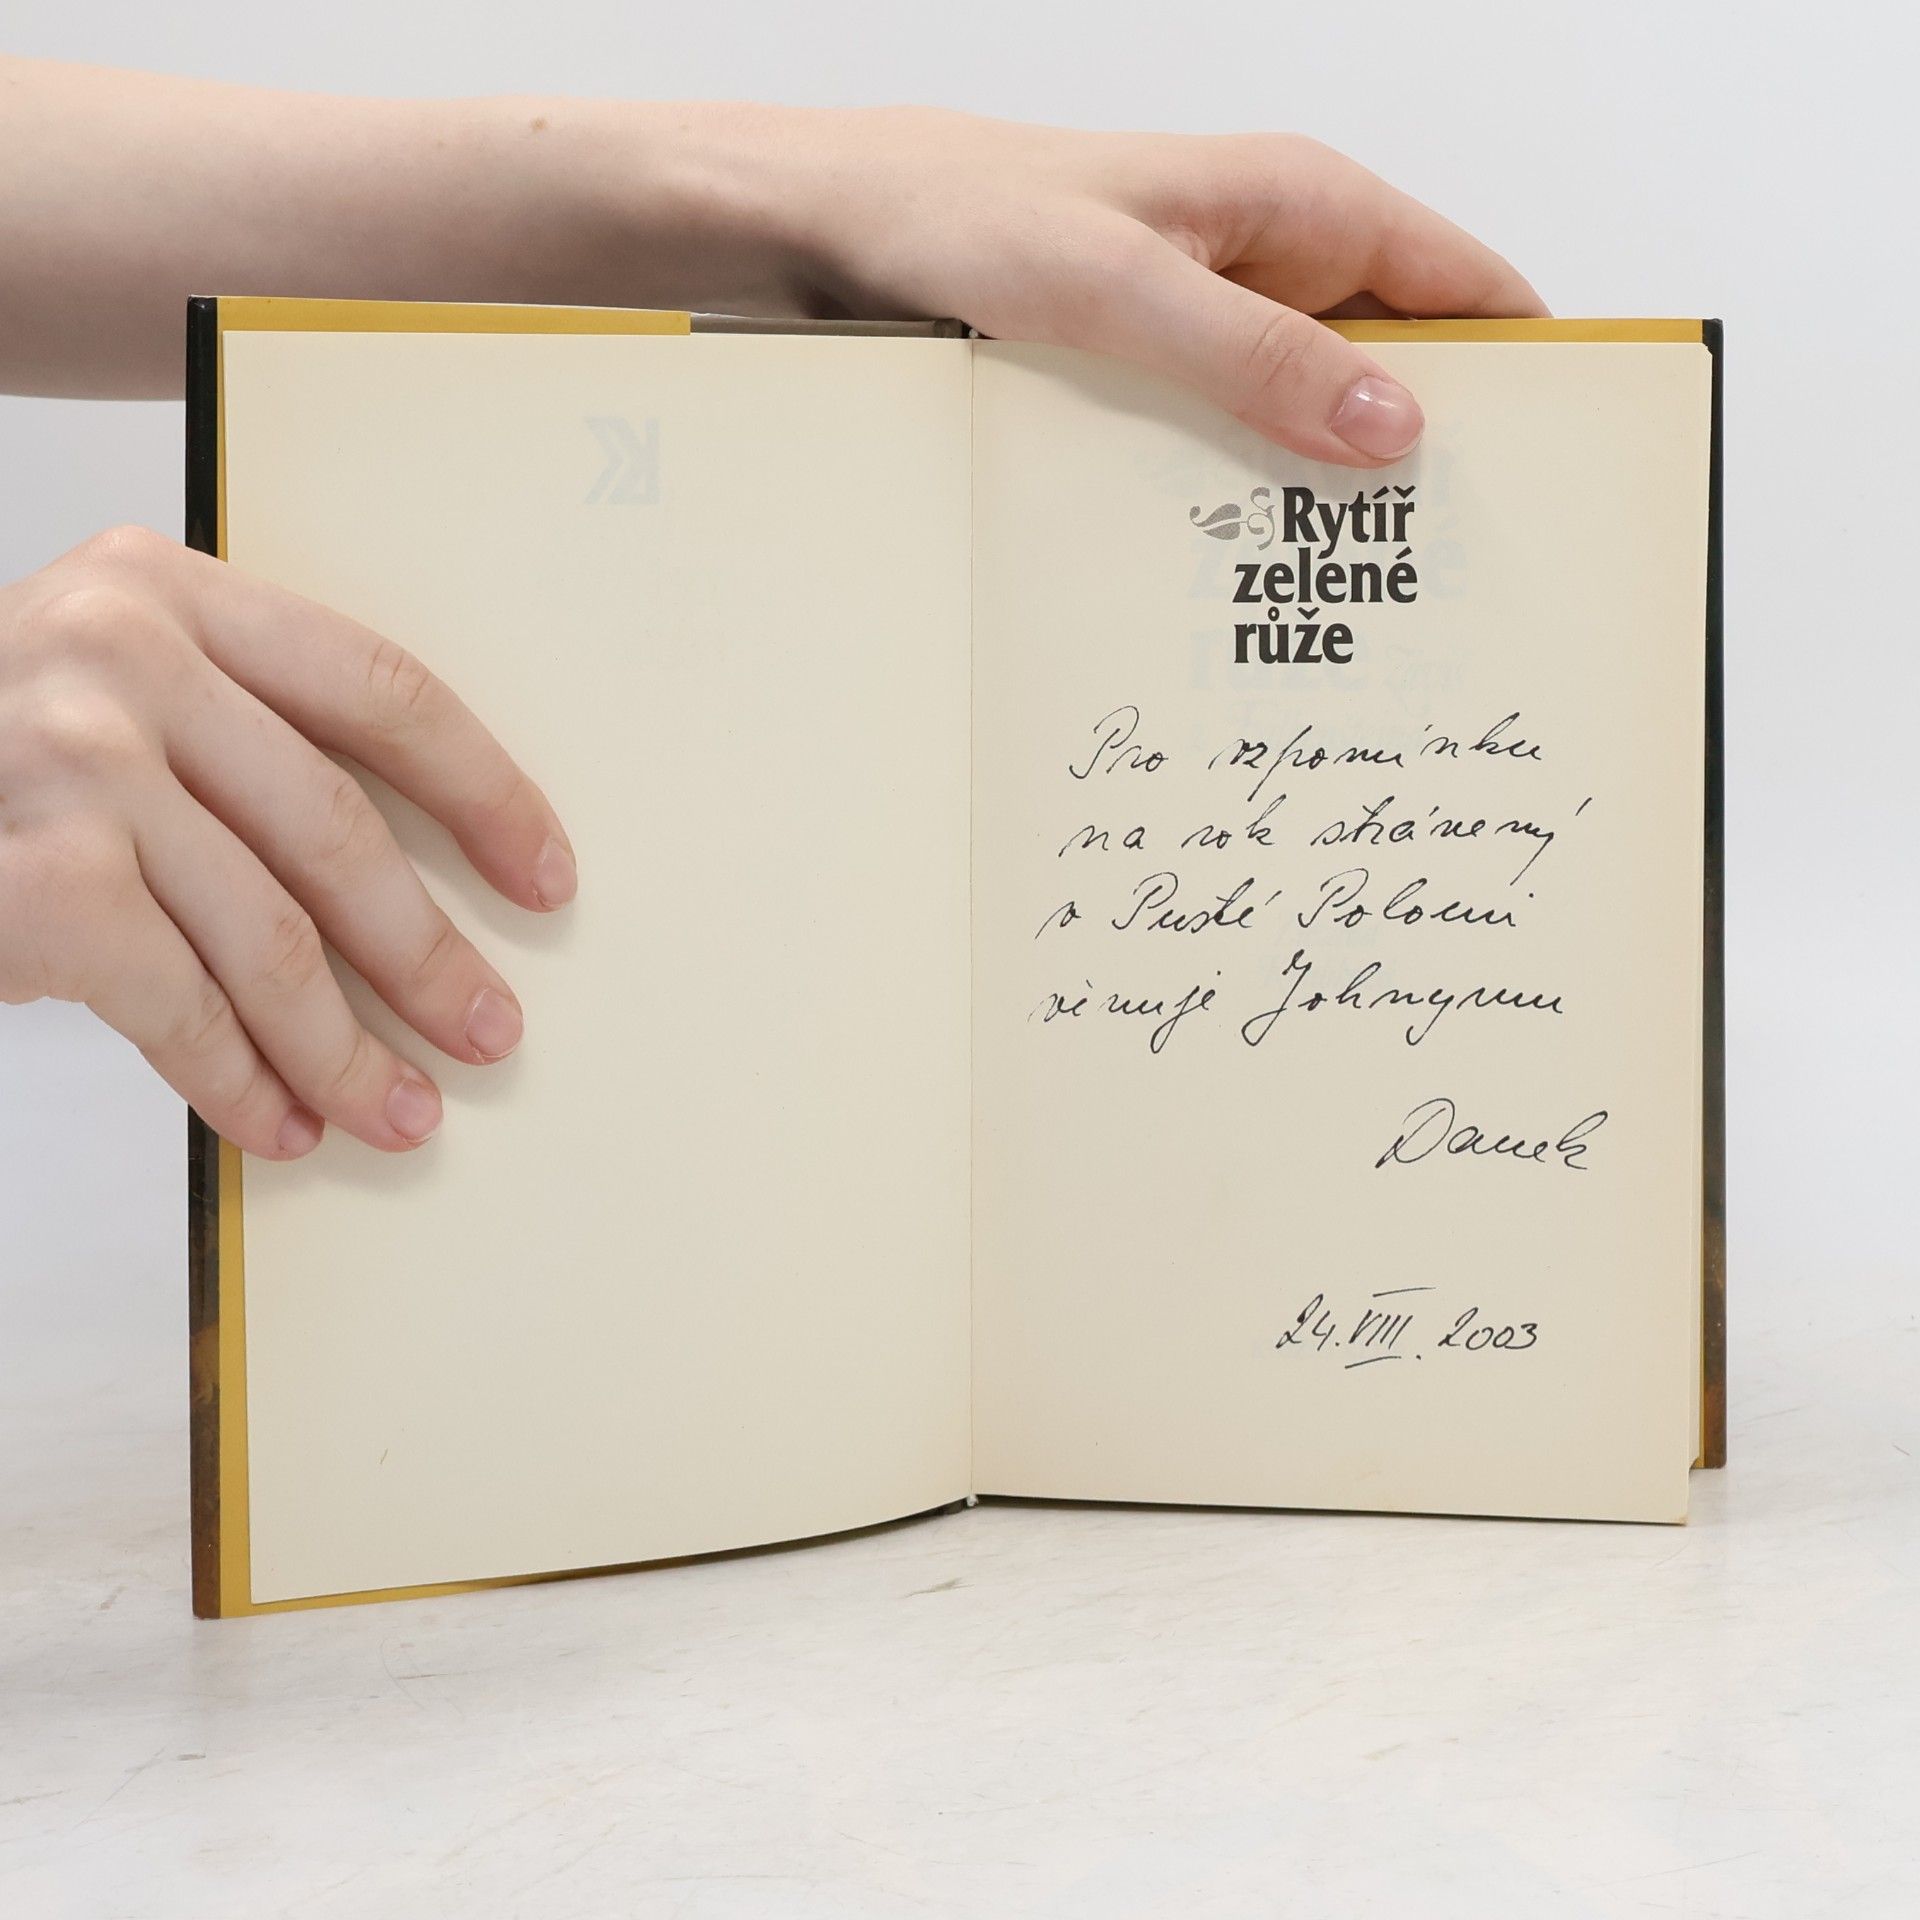 Rytíř
zelené
růže
Pro vzpomínku
na rok strávený
v Pusté Polomi
věnuje Johnymu
Danek
24. VIII. 2003